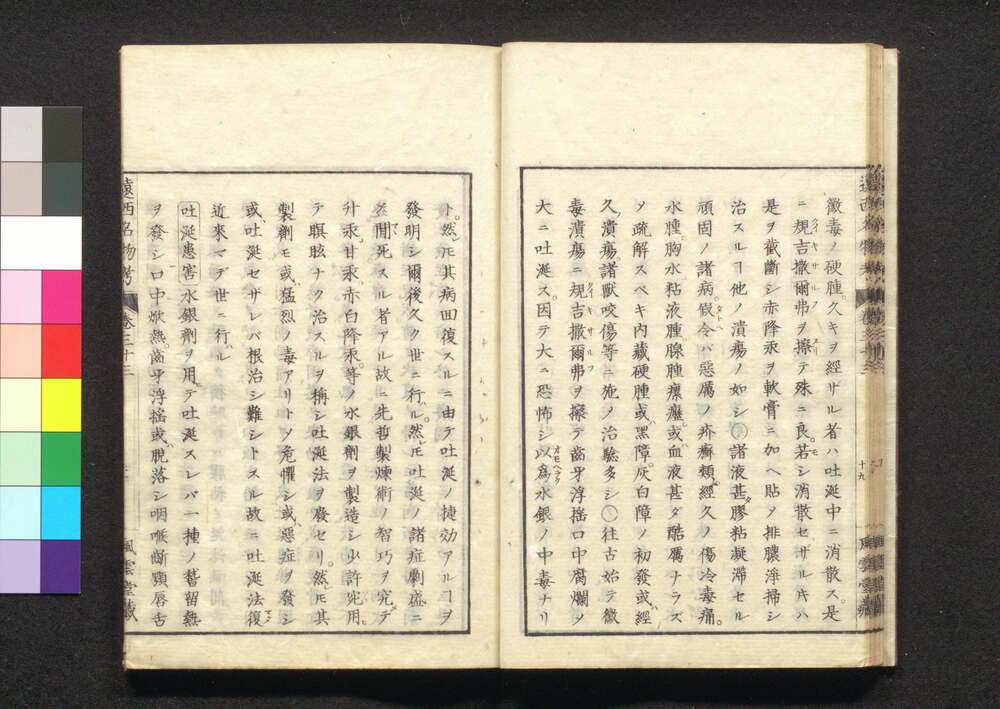 黴毒ノ硬腫。久キヲ經ザル者ハ吐涎中ニ消散ス。是
ニ規吉撒爾弗ヲ擦テ殊ニ良。若シ消散セザルキハ
是ヲ截斷シ赤降汞ヲ軟膏ニ加ヘ貼ヲ排膿淨掃シ
治スルヿ他ノ潰瘍ノ如シ○諸液甚ダ膠粘凝滯セル
頑固ノ諸病。假令バ惡厲ノ疥癬類經久ノ傷冷毒痛。
水腫。胸水粘液腫腺腫瘰癧。或ハ血液甚ダ酷厲ナラズ
ソ疏解スベキ内藏硬腫或ハ黑障。灰白障ノ初發或ハ經
久ノ潰瘍。諸獸咬傷等ニ施ソ治驗多シ○往古始テ黴
毒潰瘍ニ規吉撒爾弗ヲ擦テ齒牙浮搖口中腐爛ソ
大ニ吐涎ス。因テ大ニ恐怖シ以爲水銀ノ中毒ナリ
十九
ト。然ᅟ𪜈其病囬復スルニ由テ吐涎ノ捷効アルヿヲ
發明シ爾後久ク世ニ行ハル。然𪜈吐涎ノ諸症劇盛ニ
ソ間死スル者アル故ニ先哲製煉術ノ智巧ヲ究テ
升汞。甘汞。赤白降汞。等ノ水銀劑ヲ製造シ少許兊用。
テ瞑眩ナク治スルヲ稱シ吐涎法ヲ廢セリ。然𪜈其
製劑モ或ハ猛烈ノ毒アリトソ危懼シ或ハ惡症ヲ發シ
或ハ吐涎セザレバ根治シ難シトスル故ニ吐涎法復
近來マデ世ニ行ハル
吐涎患害 水銀劑ヲ用テ吐涎スレバ一種ノ醬留熱
ヲ發シ口中焮熱。齒牙浮搖或ハ脫落シ咽喉齗顋唇舌
遠西名物考
卷三十三
風雲堂藏